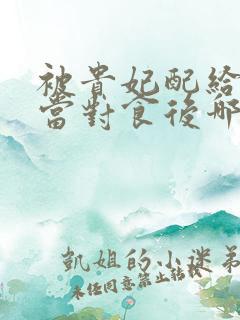 被貴妃配給
當對食後那
凱姐的小迷弟
未经同意禁止转载